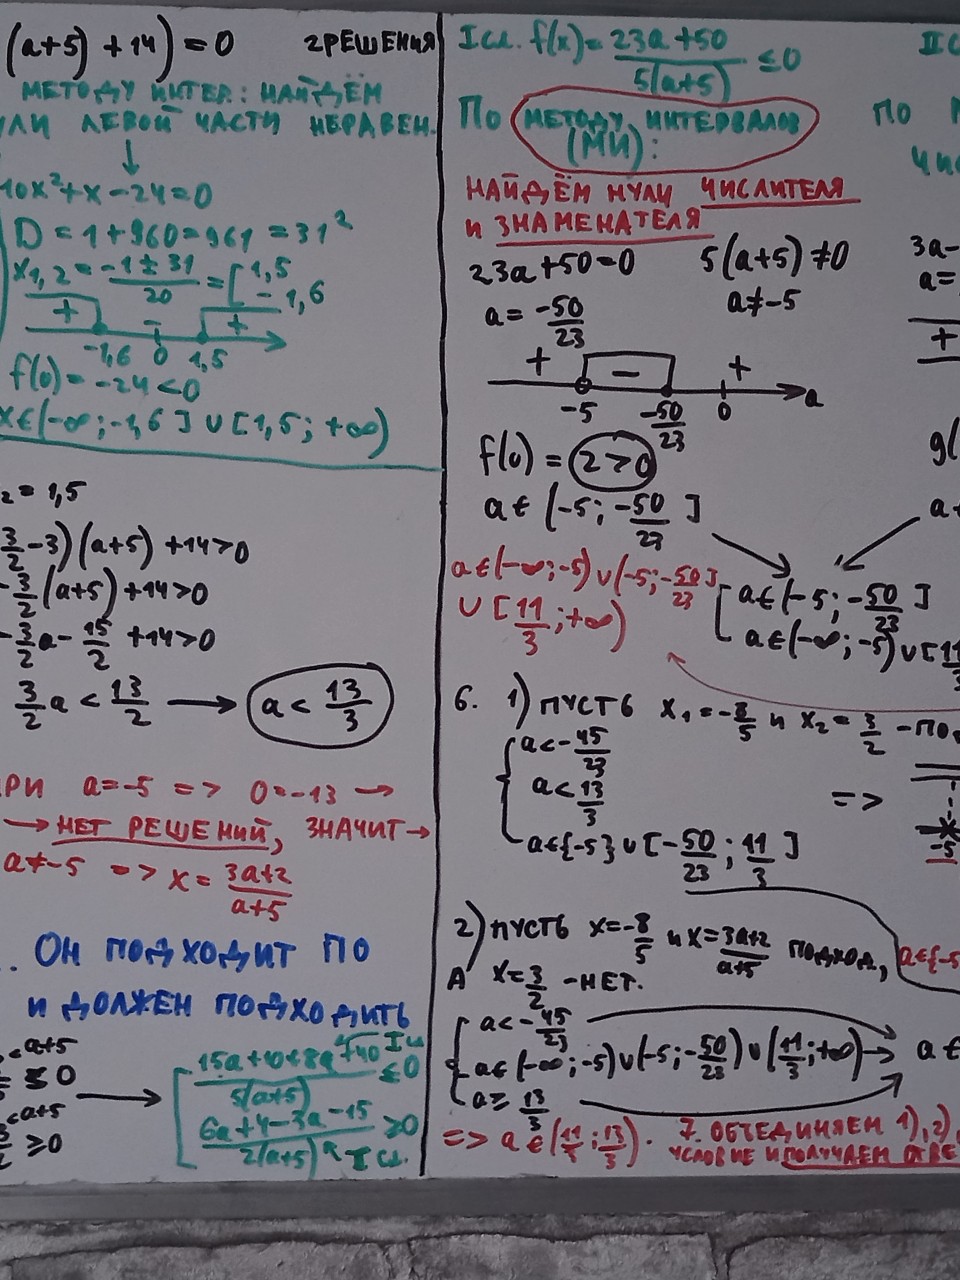 (a+5) + 14) = 0 2 РЕШЕНИЯ
МЕТОДУ ИНТЕР.: НАЙДЁМ
УЛИ ЛЕВОЙ ЧАСТИ НЕРАВЕН.
10x²+x-24=0
D = 1+960=961 = 31²
x₁,₂ = (-1±31)/20 = [1,5
-1,6
+ - +
-1,6 0 1,5
f(0) = -24<0
x∈(-∞;-1,6]∪[1,5;+∞)
₂ = 1,5
3/2-3)(a+5) +14>0
-3/2(a+5) +14>0
-3/2a-15/2 +14>0
3/2a < 13/2 → a < 13/3
РИ a=-5 => 0=-13 →
→ НЕТ РЕШЕНИЙ, ЗНАЧИТ →
a≠-5 => x = (3a+2)/(a+5)
.. ОН ПОДХОДИТ ПО
И ДОЛЖЕН ПОДХОДИТЬ
a+5
≤0
a+5
≥0
→
[ (15a+10+8a+40)/(5(a+5)) ≤0 I сл.
(6a+4-3a-15)/(2(a+5)) ≥0 I сл.
I сл. f(x) = (23a+50)/(5(a+5)) ≤0
По МЕТОДУ ИНТЕРВАЛОВ
(МИ):
НАЙДЁМ НУЛИ ЧИСЛИТЕЛЯ
И ЗНАМЕНАТЕЛЯ
23a+50=0 5(a+5)≠0
a = -50/23 a≠-5
+ - +
-5 -50/23 0 a
f(0) = 2>0
a∈(-5;-50/23]
a∈(-∞;-5)∪(-5;-50/23]
∪[11/3;+∞)
[ a∈(-5;-50/23]
a∈(-∞;-5)∪[11/3
6. 1) ПУСТЬ x₁=-8/5 и x₂=3/2 -ПО
{ a<-45/23
a<13/3
a∈{-5}∪[-50/23;11/3]
=>
-5
2) ПУСТЬ x=-8/5 и x=(3a+2)/(a+5) ПОДХОД,
А x=3/2 -НЕТ.
a∈{-5
{ a<-45/23
a∈(-∞;-5)∪(-5;-50/23)∪(11/3;+∞) → a∈
a≥13/3
=> a∈( ;13/3). 7. ОБЪЕДИНЯЕМ 1),2),
УСЛОВИЕ И ПОЛУЧАЕМ ОТВЕ
II С
ПО
ЧИС
3a-
a=
+
g(
a